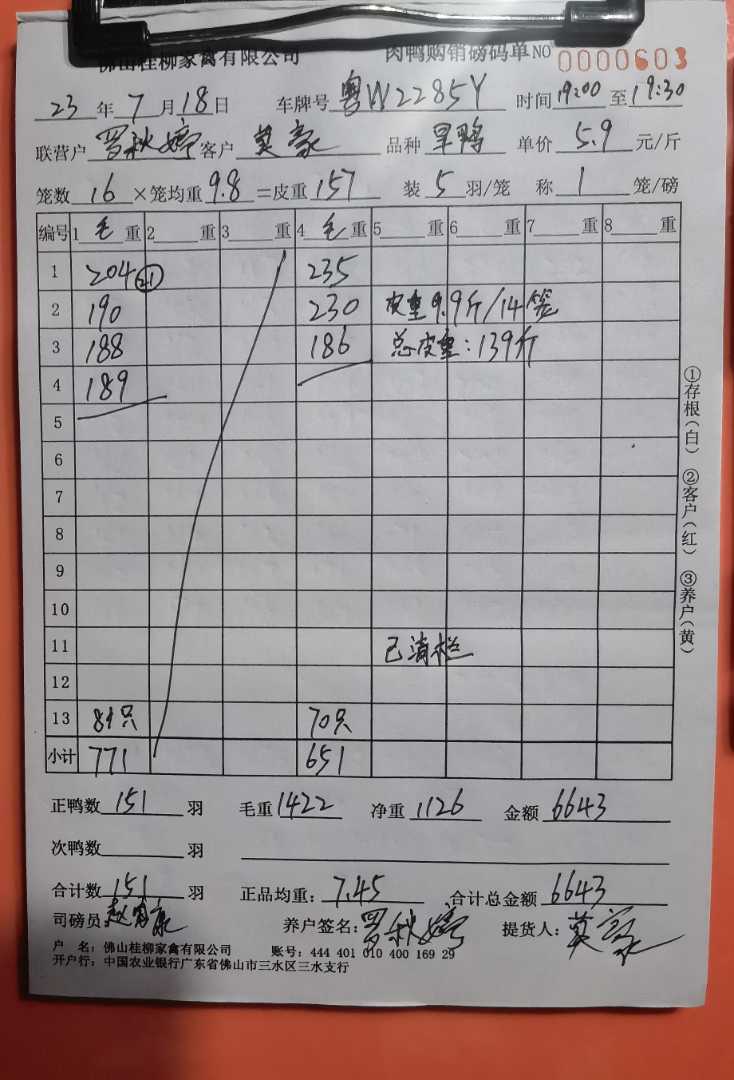 佛山桂柳家禽有限公司 肉鸭购销磅码单 NO 0000603
23 年 7 月 18 日 车牌号 粤W2285Y 时间 19:00 至 19:30
联营户 罗秋婷 客户 莫豪 品种 旱鸭 单价 5.9 元/斤
笼数 16 ×笼均重 9.8 =皮重 157 装 5 羽/笼 称 1 笼/磅
编号 1 毛 重 2 重 3 重 4 毛 重 5 重 6 重 7 重 8 重
1 204 21 235
2 190 230 皮重9.9斤/14笼
3 188 186 总皮重:139斤
4 189
5
6
7
8
9
10
11 已清栏
12
13 81只 70只
小计 771 651
正鸭数 151 羽 毛重 1422 净重 1126 金额 6643
次鸭数 羽
合计数 151 羽 正品均重: 7.45 合计总金额 6643
司磅员: 养户签名: 罗秋婷 提货人: 莫豪
户 名: 佛山桂柳家禽有限公司 账号: 444 401 010 400 169 29
开户行: 中国农业银行广东省佛山市三水区三水支行
①存根(白) ②客户(红) ③养户(黄)